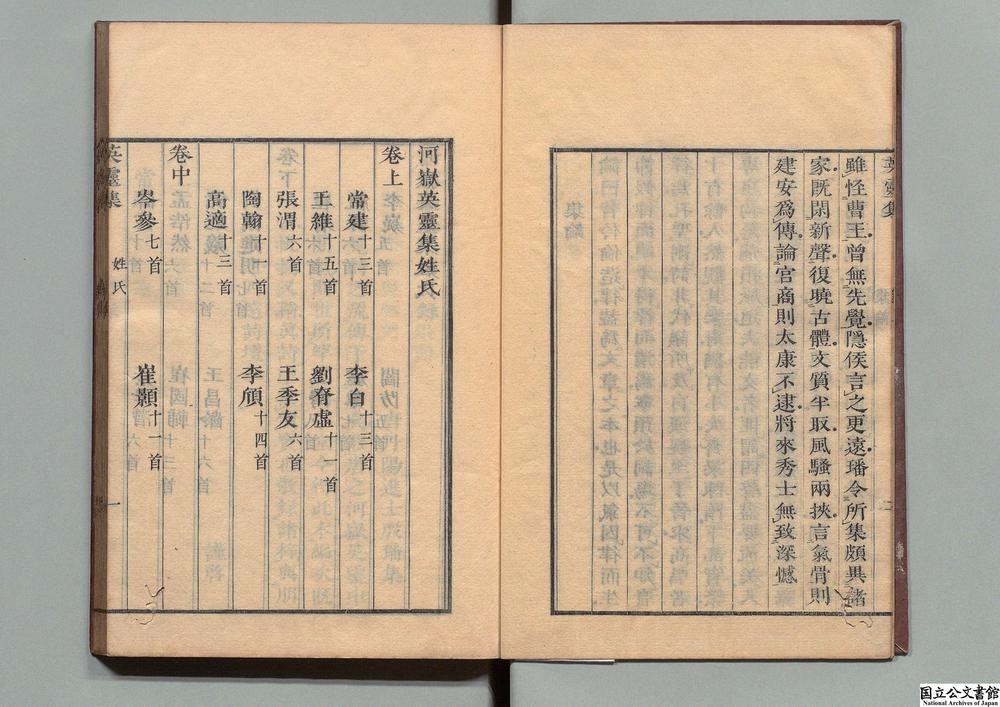 雖怪曹王曾無先覺隱侯言之更遠璠今所集頗異諸
家既閑新聲復曉古體文質半取風騷兩挾言氣骨則
建安爲傳論宮商則太康不逮將來秀士無致深憾
河嶽英靈集姓氏
卷上
常建十三首 李白十三首
王維十五首 劉眘虛十一首
張渭六首 王季友六首
陶翰十一首 李頎十四首
高適十三首
卷中
岑參七首 崔顥十一首
英靈集 姓氏 一
国立公文書館
National Archives of Japan